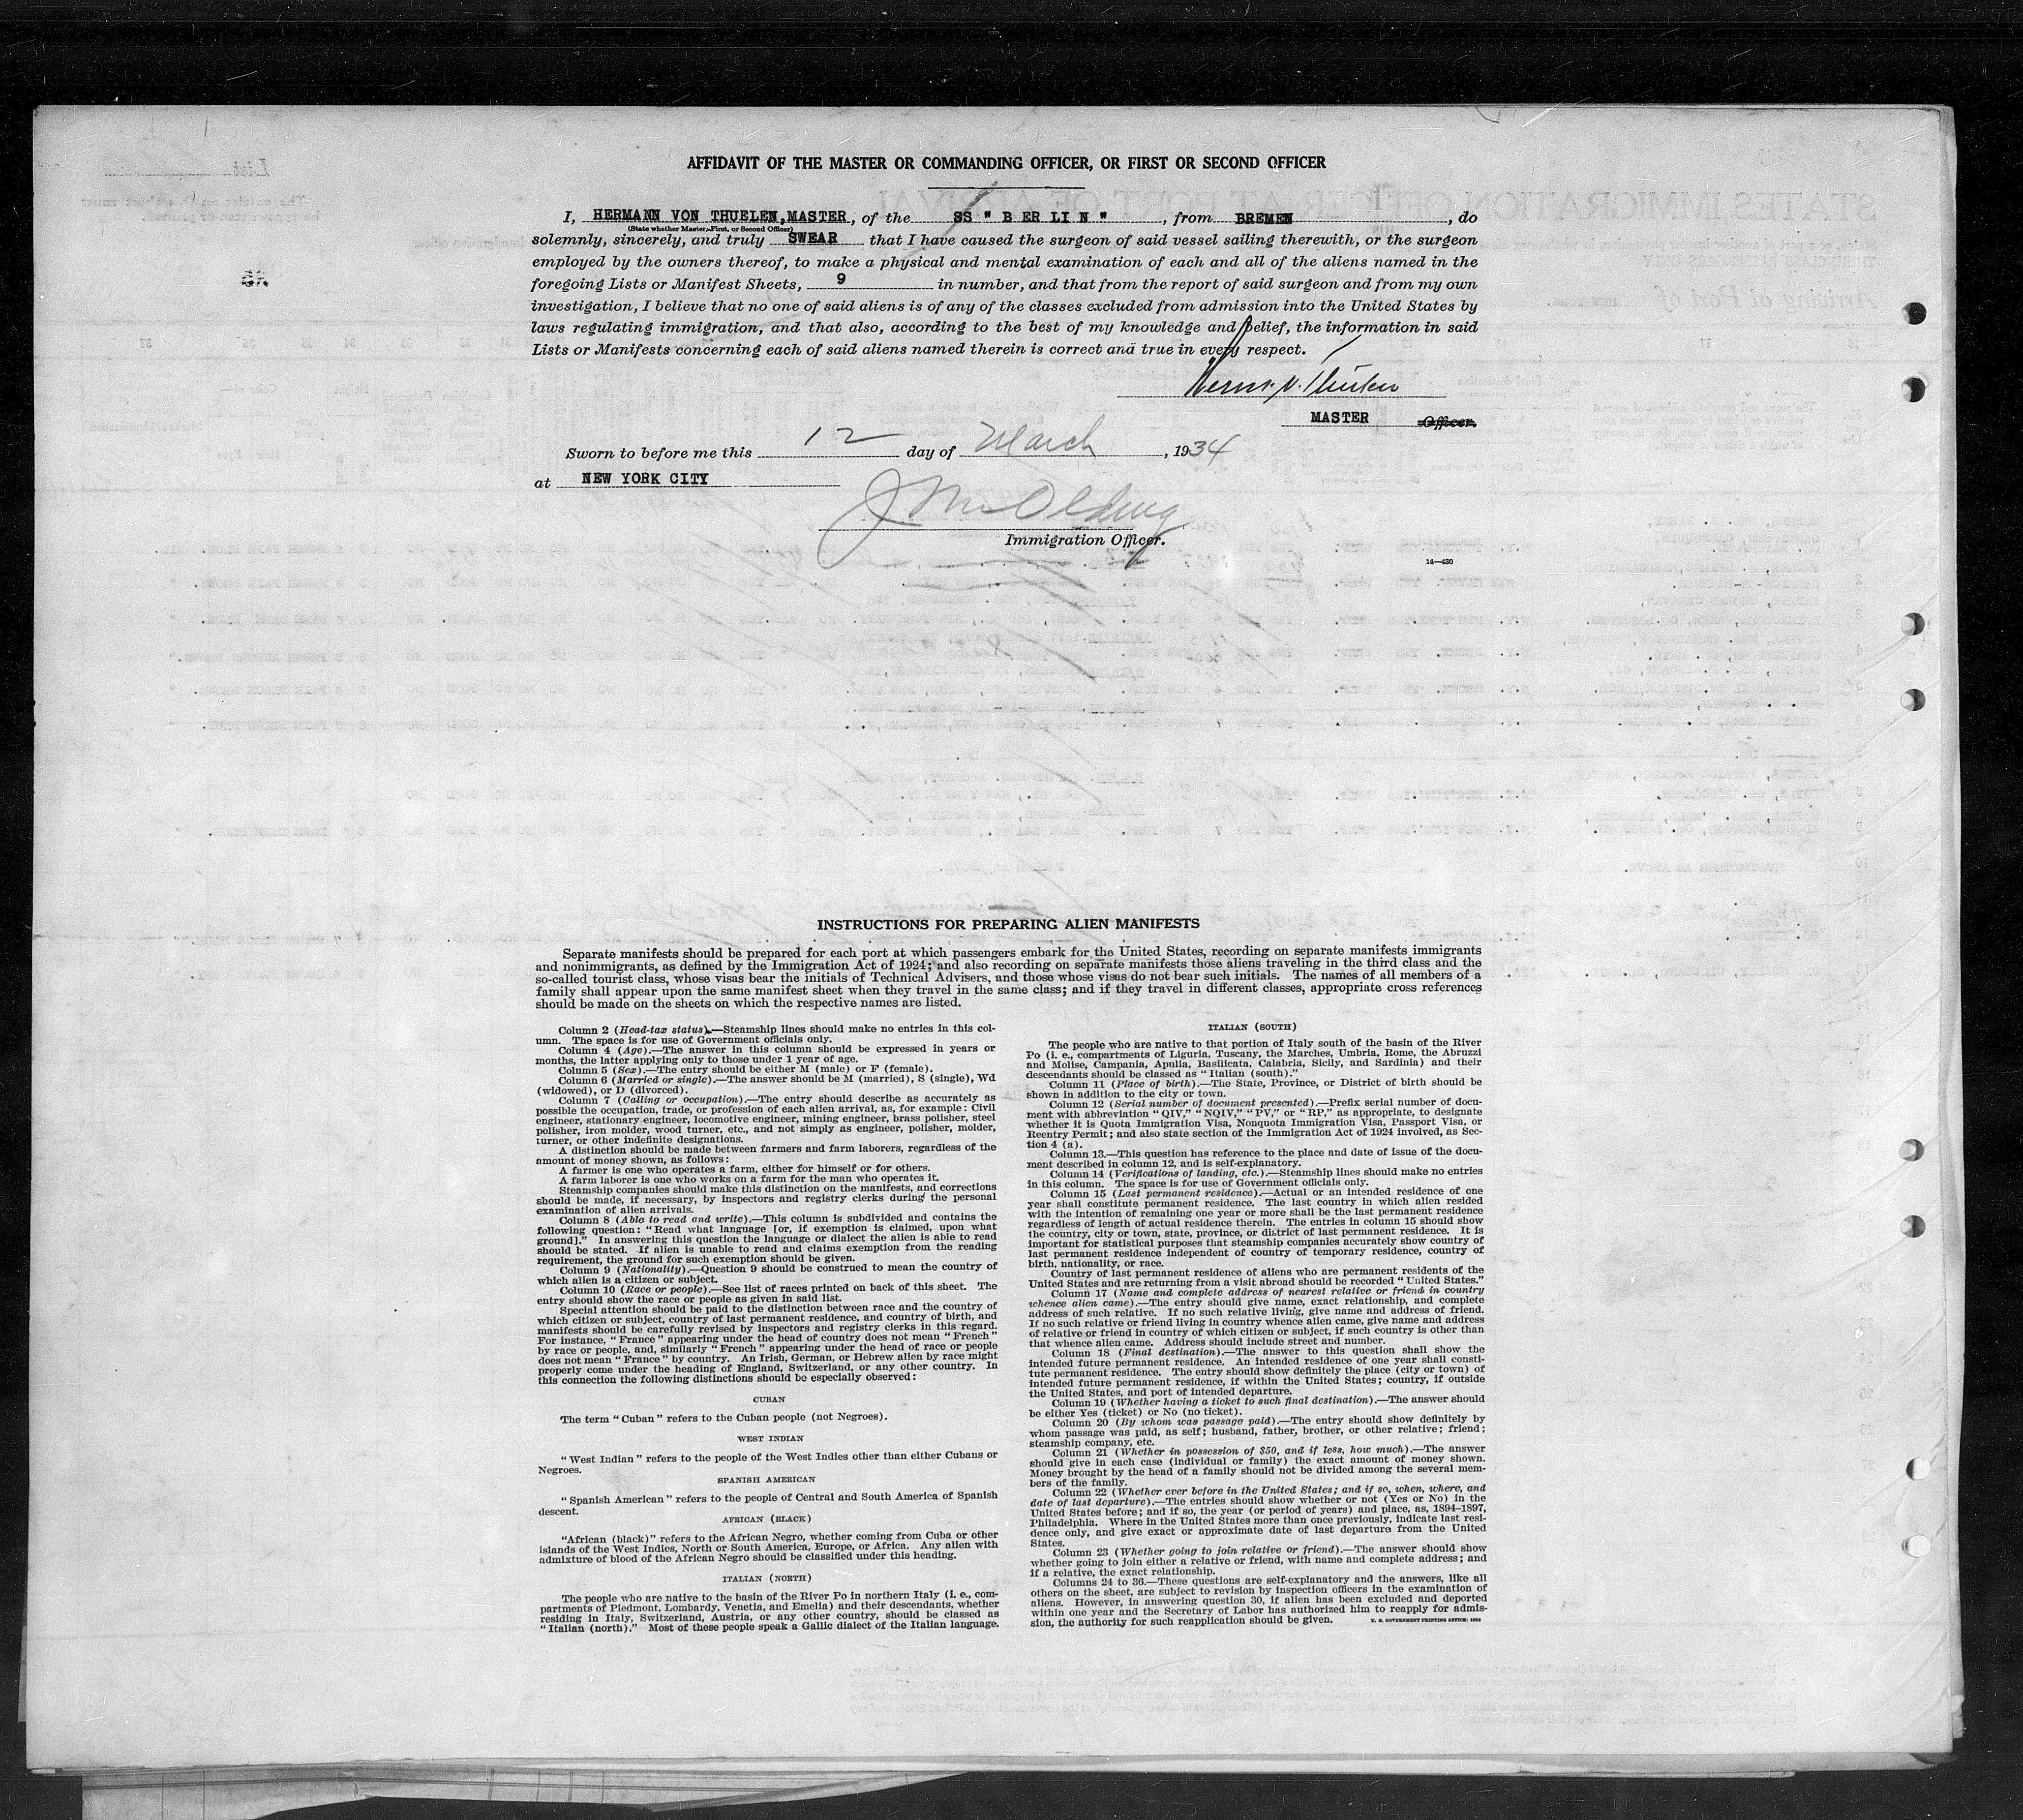 AFFIDAVIT OF THE MASTER OR COMMANDING OFFICER, OR FIRST OR SECOND OFFICER
I, HERMANN VON THUELEN, MASTER, of the SS " B ER LI N ", from BREMEN, do
(State whether Master, First, or Second Officer)
solemnly, sincerely, and truly SWEAR that I have caused the surgeon of said vessel sailing therewith, or the surgeon
employed by the owners thereof, to make a physical and mental examination of each and all of the aliens named in the
foregoing Lists or Manifest Sheets, 9 in number, and that from the report of said surgeon and from my own
investigation, I believe that no one of said aliens is of any of the classes excluded from admission into the United States by
laws regulating immigration, and that also, according to the best of my knowledge and belief, the information in said
Lists or Manifests concerning each of said aliens named therein is correct and true in every respect.
MASTER Officer.
Sworn to before me this 12 day of March, 1934
at NEW YORK CITY
Immigration Officer.
14—430
INSTRUCTIONS FOR PREPARING ALIEN MANIFESTS
Separate manifests should be prepared for each port at which passengers embark for the United States, recording on separate manifests immigrants
and nonimmigrants, as defined by the Immigration Act of 1924; and also recording on separate manifests those aliens traveling in the third class and the
so-called tourist class, whose visas bear the initials of Technical Advisers, and those whose visas do not bear such initials. The names of all members of a
family shall appear upon the same manifest sheet when they travel in the same class; and if they travel in different classes, appropriate cross references
should be made on the sheets on which the respective names are listed.
Column 2 (Head-tax status).—Steamship lines should make no entries in this col-
umn. The space is for use of Government officials only.
Column 4 (Age).—The answer in this column should be expressed in years or
months, the latter applying only to those under 1 year of age.
Column 5 (Sex).—The entry should be either M (male) or F (female).
Column 6 (Married or single).—The answer should be M (married), S (single), Wd
(widowed), or D (divorced).
Column 7 (Calling or occupation).—The entry should describe as accurately as
possible the occupation, trade, or profession of each alien arrival, as, for example: Civil
engineer, stationary engineer, locomotive engineer, mining engineer, brass polisher, steel
polisher, iron molder, wood turner, etc., and not simply as engineer, polisher, molder,
turner, or other indefinite designations.
A distinction should be made between farmers and farm laborers, regardless of the
amount of money shown, as follows:
A farmer is one who operates a farm, either for himself or for others.
A farm laborer is one who works on a farm for the man who operates it.
Steamship companies should make this distinction on the manifests, and corrections
should be made, if necessary, by inspectors and registry clerks during the personal
examination of alien arrivals.
Column 8 (Able to read and write).—This column is subdivided and contains the
following question: "Read what language [or, if exemption is claimed, upon what
ground]." In answering this question the language or dialect the alien is able to read
should be stated. If alien is unable to read and claims exemption from the reading
requirement, the ground for such exemption should be given.
Column 9 (Nationality).—Question 9 should be construed to mean the country of
which alien is a citizen or subject.
Column 10 (Race or people).—See list of races printed on back of this sheet. The
entry should show the race or people as given in said list.
Special attention should be paid to the distinction between race and the country of
which citizen or subject, country of last permanent residence, and country of birth, and
manifests should be carefully revised by inspectors and registry clerks in this regard.
For instance, "France" appearing under the head of country does not mean "French"
by race or people, and, similarly "French" appearing under the head of race or people
does not mean "France" by country. An Irish, German, or Hebrew alien by race might
properly come under the heading of England, Switzerland, or any other country. In
this connection the following distinctions should be especially observed:
CUBAN
The term "Cuban" refers to the Cuban people (not Negroes).
WEST INDIAN
"West Indian" refers to the people of the West Indies other than either Cubans or
Negroes.
SPANISH AMERICAN
"Spanish American" refers to the people of Central and South America of Spanish
descent.
AFRICAN (BLACK)
"African (black)" refers to the African Negro, whether coming from Cuba or other
islands of the West Indies, North or South America, Europe, or Africa. Any alien with
admixture of blood of the African Negro should be classified under this heading.
ITALIAN (NORTH)
The people who are native to the basin of the River Po in northern Italy (i. e., com-
partments of Piedmont, Lombardy, Venetia, and Emelia) and their descendants, whether
residing in Italy, Switzerland, Austria, or any other country, should be classed as
"Italian (north)." Most of these people speak a Gallic dialect of the Italian language.
ITALIAN (SOUTH)
The people who are native to that portion of Italy south of the basin of the River
Po (i. e., compartments of Liguria, Tuscany, the Marches, Umbria, Rome, the Abruzzi
and Molise, Campania, Apulia, Basilicata, Calabria, Sicily, and Sardinia) and their
descendants should be classed as "Italian (south)."
Column 11 (Place of birth).—The State, Province, or District of birth should be
shown in addition to the city or town.
Column 12 (Serial number of document presented).—Prefix serial number of docu-
ment with abbreviation "QIV," "NQIV," "PV," or "RP," as appropriate, to designate
whether it is Quota Immigration Visa, Nonquota Immigration Visa, Passport Visa, or
Reentry Permit; and also state section of the Immigration Act of 1924 involved, as Sec-
tion 4 (a).
Column 13.—This question has reference to the place and date of issue of the docu-
ment described in column 12, and is self-explanatory.
Column 14 (Verifications of landing, etc.).—Steamship lines should make no entries
in this column. The space is for use of Government officials only.
Column 15 (Last permanent residence).—Actual or an intended residence of one
year shall constitute permanent residence. The last country in which alien resided
with the intention of remaining one year or more shall be the last permanent residence
regardless of length of actual residence therein. The entries in column 15 should show
the country, city or town, state, province, or district of last permanent residence. It is
important for statistical purposes that steamship companies accurately show country of
last permanent residence independent of country of temporary residence, country of
birth, nationality, or race.
Country of last permanent residence of aliens who are permanent residents of the
United States and are returning from a visit abroad should be recorded "United States."
Column 17 (Name and complete address of nearest relative or friend in country
whence alien came).—The entry should give name, exact relationship, and complete
address of such relative. If no such relative living, give name and address of friend.
If no such relative or friend living in country whence alien came, give name and address
of relative or friend in country of which citizen or subject, if such country is other than
that whence alien came. Address should include street and number.
Column 18 (Final destination).—The answer to this question shall show the
intended future permanent residence. An intended residence of one year shall consti-
tute permanent residence. The entry should show definitely the place (city or town) of
intended future permanent residence, if within the United States; country, if outside
the United States, and port of intended departure.
Column 19 (Whether having a ticket to such final destination).—The answer should
be either Yes (ticket) or No (no ticket).
Column 20 (By whom was passage paid).—The entry should show definitely by
whom passage was paid, as self; husband, father, brother, or other relative; friend;
steamship company, etc.
Column 21 (Whether in possession of $50, and if less, how much).—The answer
should give in each case (individual or family) the exact amount of money shown.
Money brought by the head of a family should not be divided among the several mem-
bers of the family.
Column 22 (Whether ever before in the United States; and if so, when, where, and
date of last departure).—The entries should show whether or not (Yes or No) in the
United States before; and if so, the year (or period of years) and place, as, 1894–1897,
Philadelphia. Where in the United States more than once previously, indicate last resi-
dence only, and give exact or approximate date of last departure from the United
States.
Column 23 (Whether going to join relative or friend).—The answer should show
whether going to join either a relative or friend, with name and complete address; and
if a relative, the exact relationship.
Columns 24 to 36.—These questions are self-explanatory and the answers, like all
others on the sheet, are subject to revision by inspection officers in the examination of
aliens. However, in answering question 30, if alien has been excluded and deported
within one year and the Secretary of Labor has authorized him to reapply for admis-
sion, the authority for such reapplication should be given. U. S. GOVERNMENT PRINTING OFFICE: